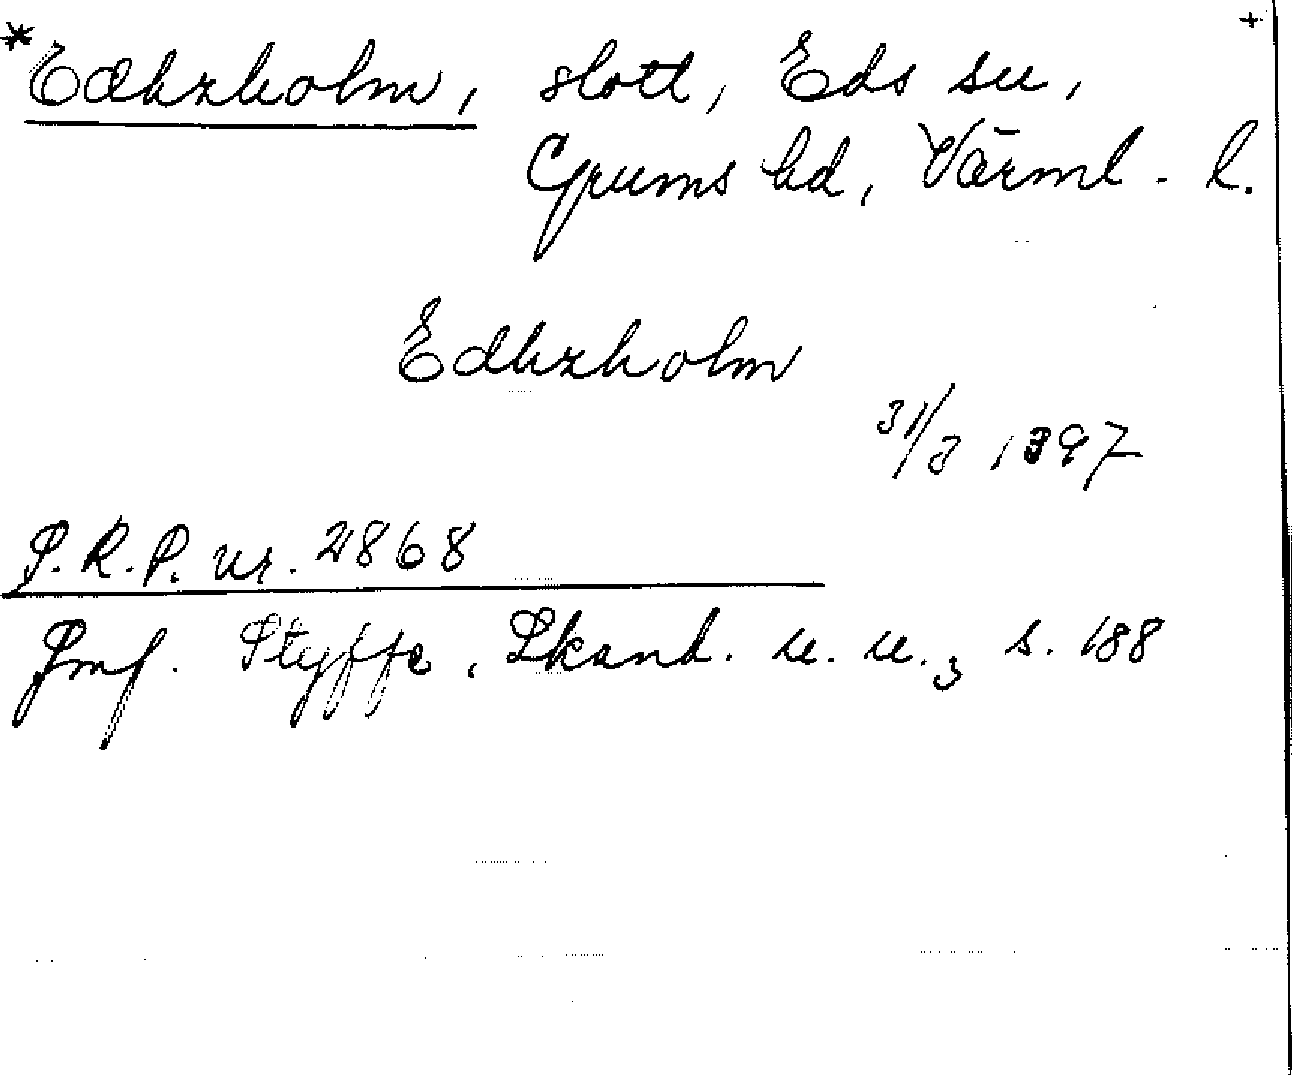 * Edhzholm, slott, Eds sn, +
Grums hd, Värml. l.
Edhzholm
31/3 1397
P.R.P. nr. 2868
Jmf. Styffe, Skand. u. u.3 s. 188